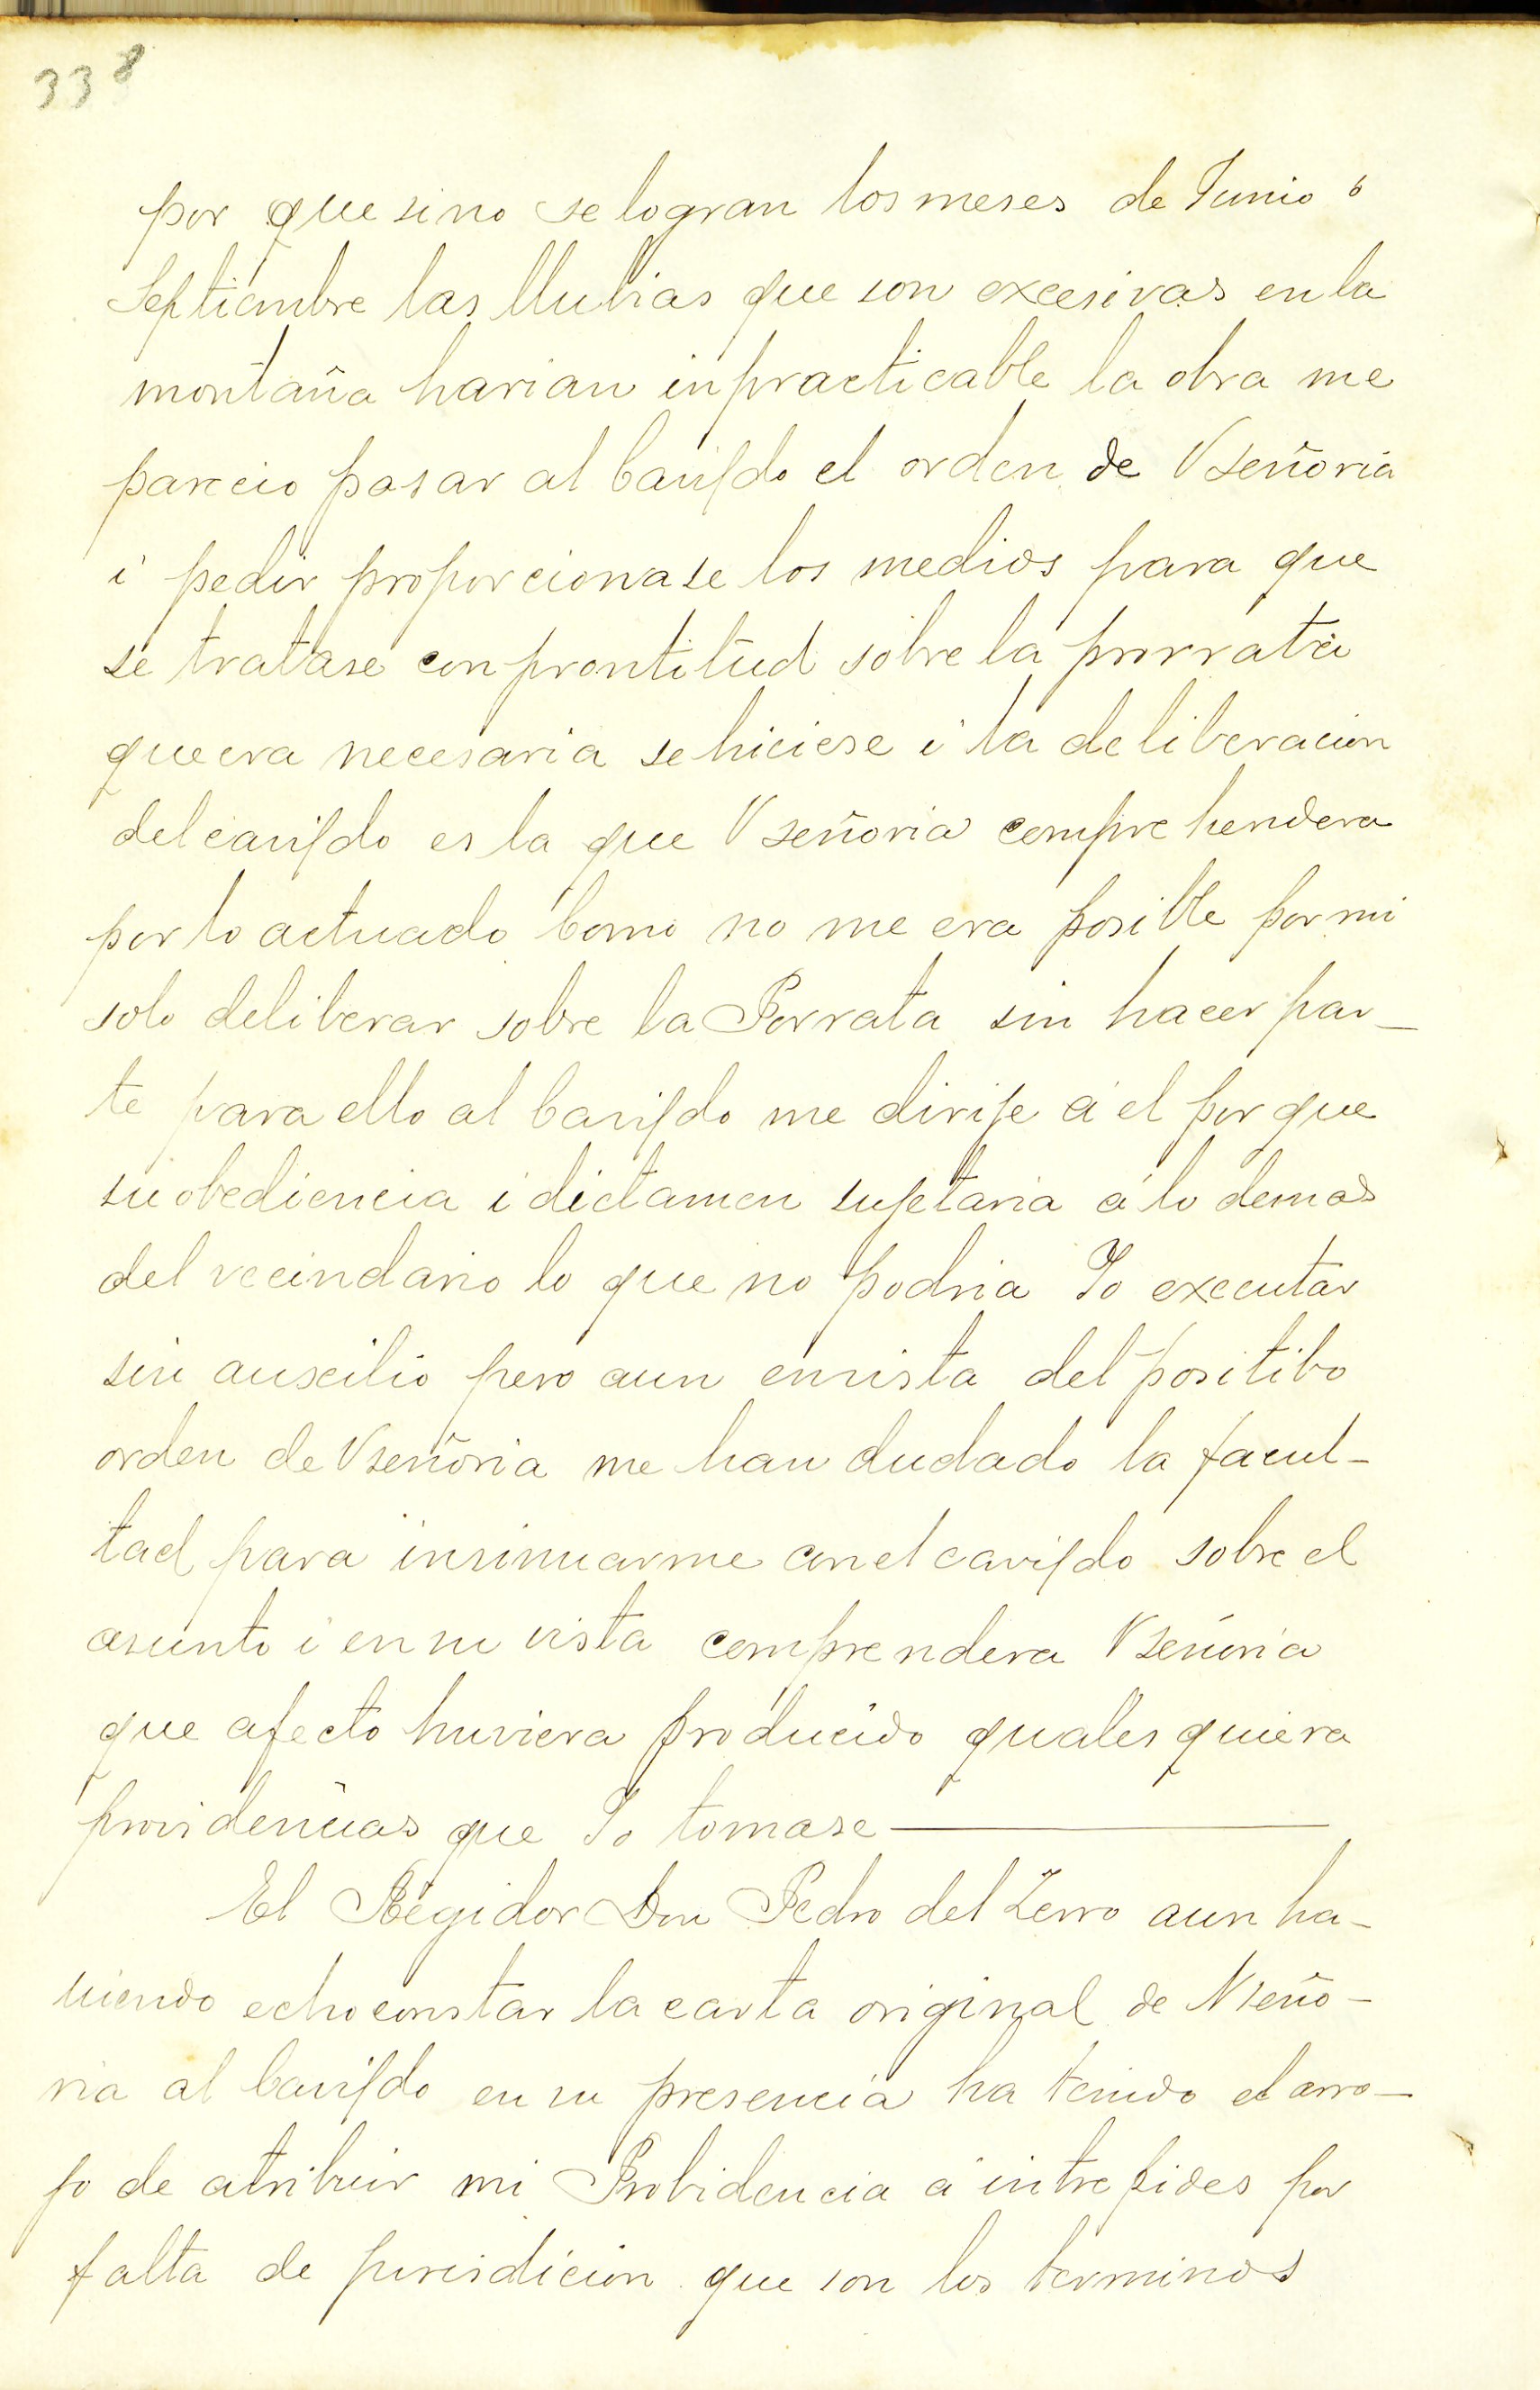 338
por que sino se logran los meses de Junio ó
Septiembre las llubias que son excesivas en la
montaña harian inpracticable la obra me
parecio pasar al Cavildo el orden de Vseñoria
i pedir proporcionase los medios para que
se tratase con prontitud sobre la prorrata
que era necesaria se hiciese i la deliberacion
del cavildo es la que Vseñoria comprehendera
por lo actuado Como no me era posible por mi
solo deliberar sobre la Porrata sin hacer par-
te para ello al Cavildo me dirije á el por que
su obediencia i dictamen sujetaria á lo demas
del vecindario lo que no podria Yo executar
sin auscilio pero aun en vista del positibo
orden de Vseñoria me han dudado la facul-
tad para insinuarme con el cavildo sobre el
asunto i en su vista comprendera Vseñoria
que afecto huviera producido quales quiera
providencias que Yo tomase
El Regidor Don Pedro del Zerro aun ha-
viendo echo constar la carta original de Vseño-
ria al Cavildo en su presencia ha tenido el arro-
jo de atribuir mi Probidencia á intrepides por
falta de jurisdicion que son los terminos